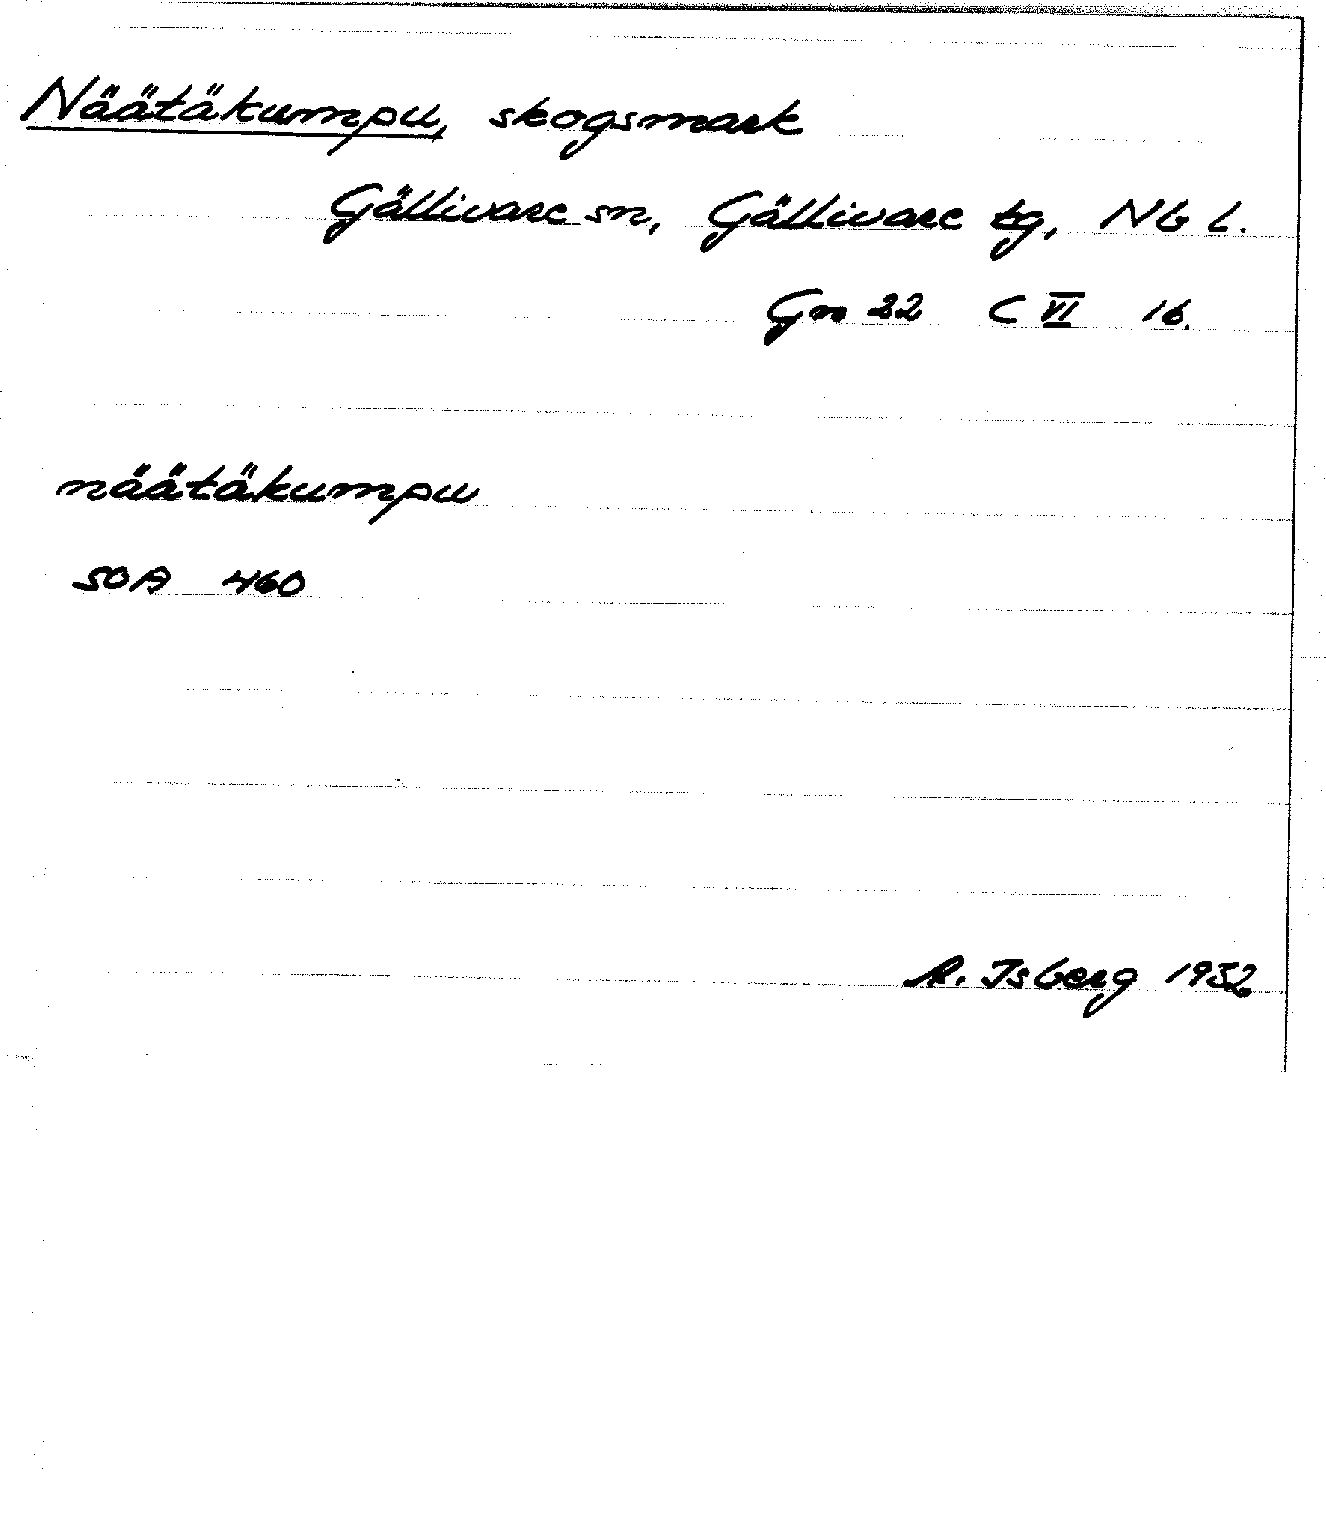 Näätäkumpu, skogsmark
Gällivare sn, Gällivare tg, Nb l.
Gn 22 C VI 16.
näätäkumpu
SOA 460
R. Isberg 1932